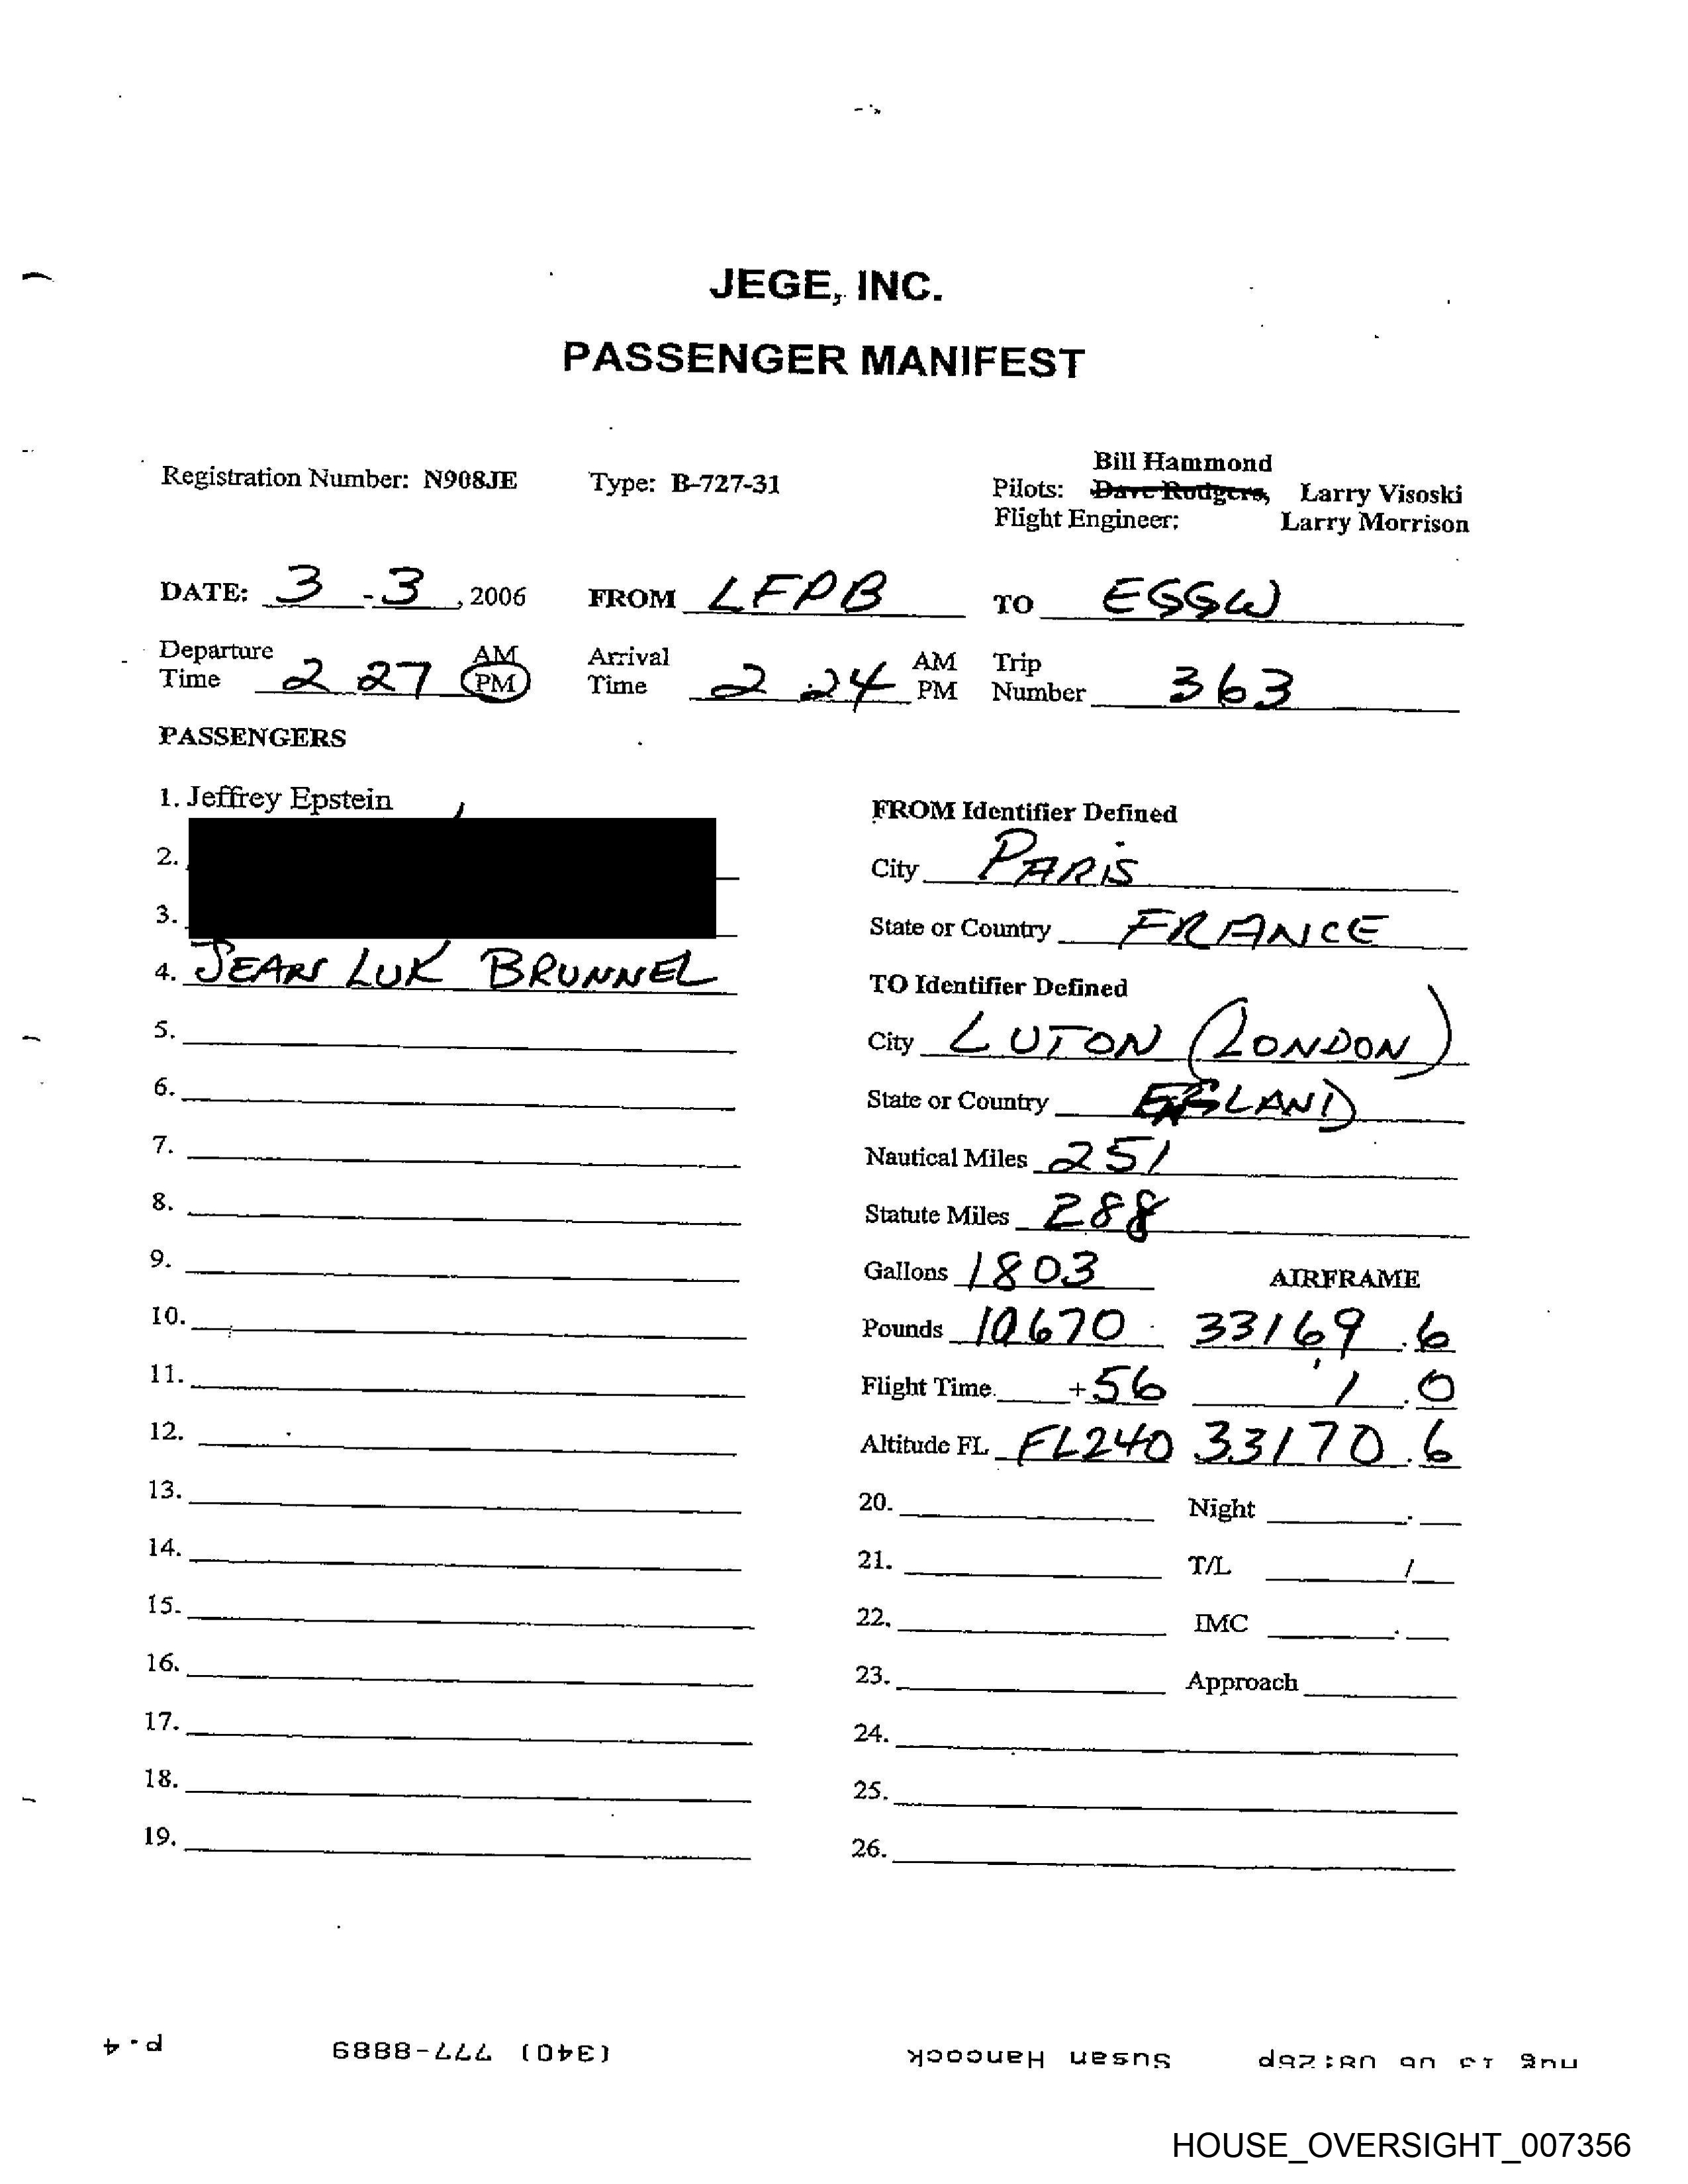 JEGE, INC.
PASSENGER MANIFEST
Bill Hammond
Registration Number: N908JE Type: B-727-31 Pilots: Dave Rodgers, Larry Visoski
Flight Engineer: Larry Morrison
DATE: 3 - 3, 2006 FROM LFPB TO EGGW
Departure Time 2 27 AM PM Arrival Time 2 24 AM PM Trip Number 363
PASSENGERS
1. Jeffrey Epstein
2.
3.
4. JEAN LUK BRUNNEL
5.
6.
7.
8.
9.
10.
11.
12.
13.
14.
15.
16.
17.
18.
19.
FROM Identifier Defined
City PARIS
State or Country FRANCE
TO Identifier Defined
City LUTON (LONDON)
State or Country ENGLAND
Nautical Miles 251
Statute Miles 288
Gallons 1803 AIRFRAME
Pounds 10670 33169.6
Flight Time +56 1.0
Altitude FL FL240 33170.6
20. Night .
21. T/L /
22. IMC .
23. Approach
24.
25.
26.
p.4 (340) 777-8889 Susan Hancock
HOUSE_OVERSIGHT_007356